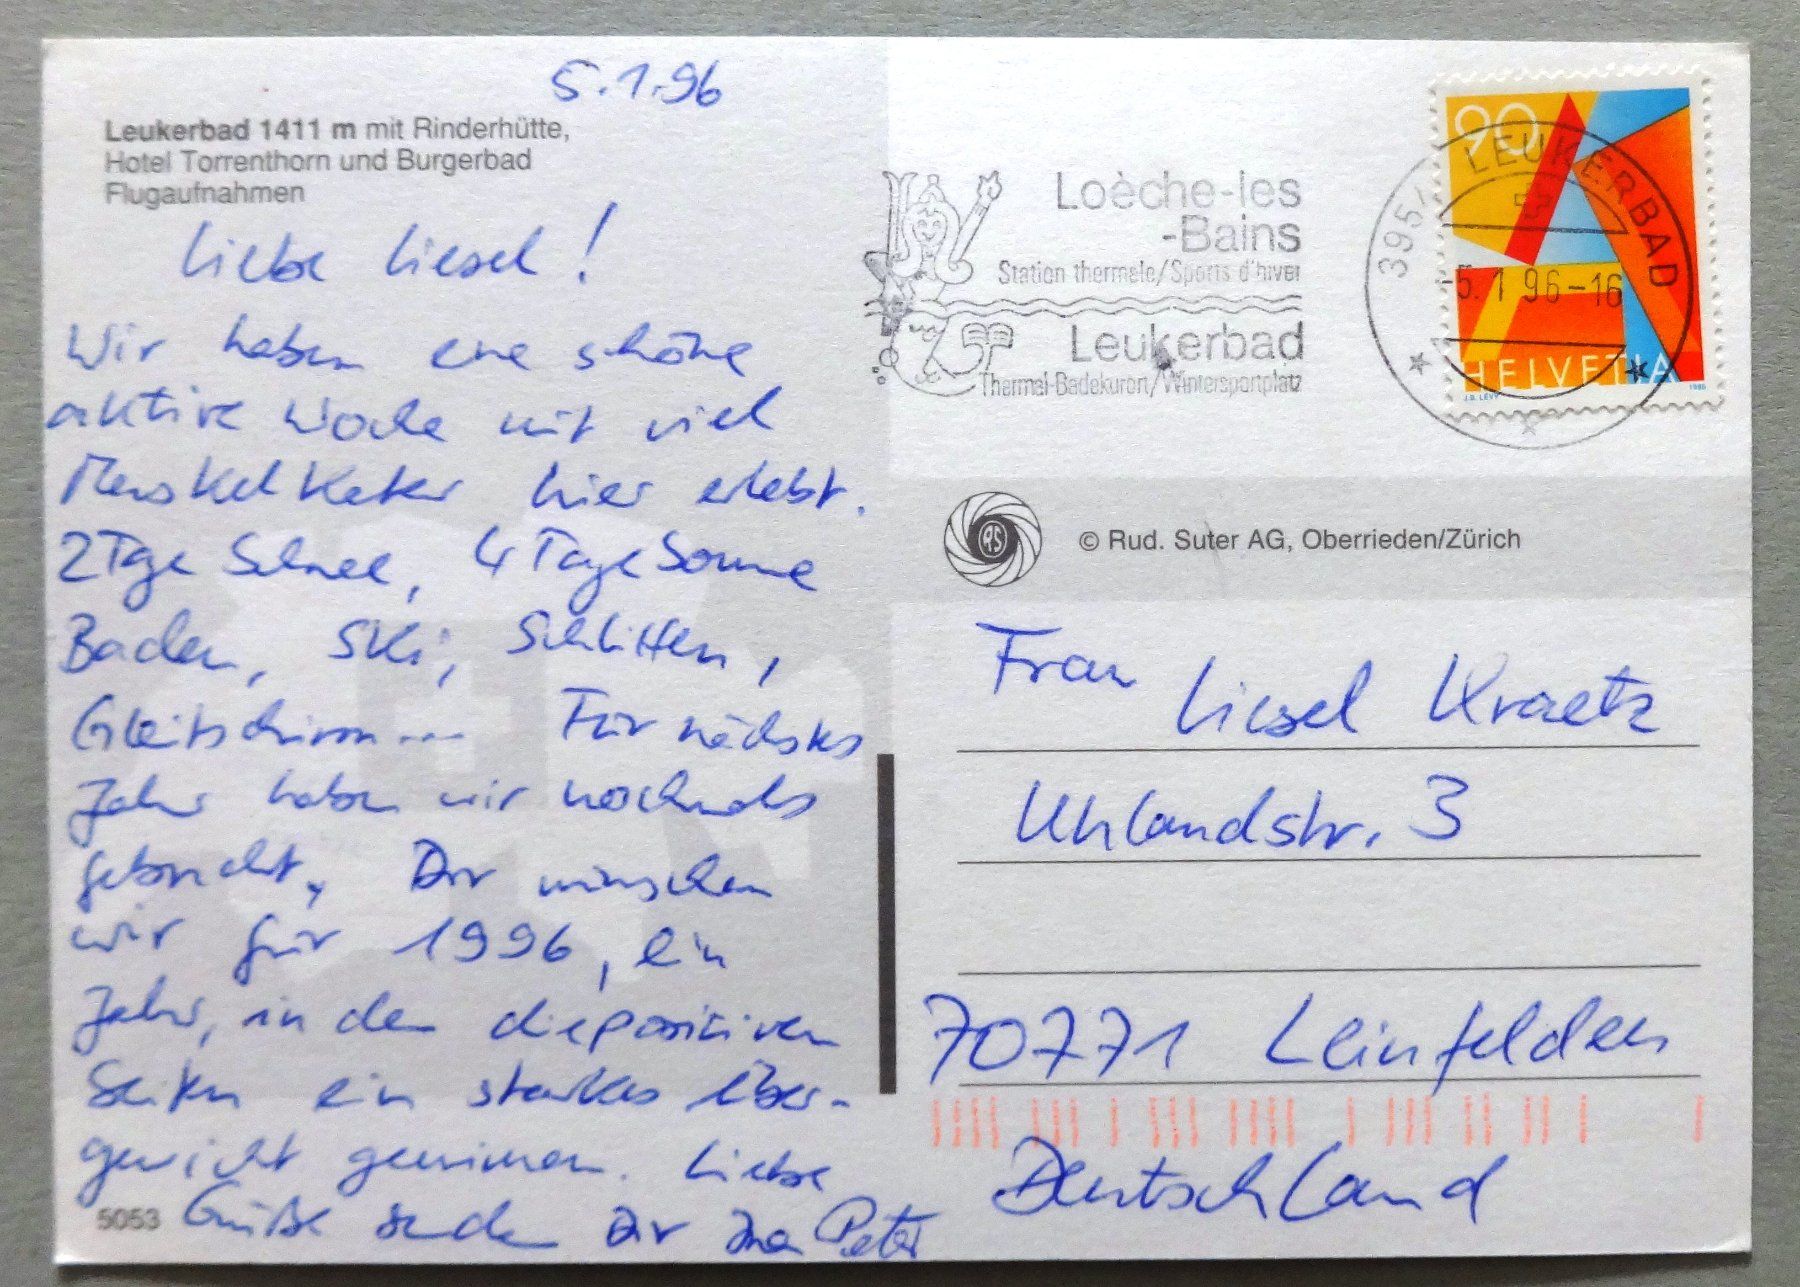 5.1.96
Leukerbad 1411 m mit Rinderhütte,
Hotel Torrenthorn und Burgerbad
Flugaufnahmen
Liebe Liesel!
Wir haben eine schöne
aktive Woche mit viel
Muskelkater hier erlebt.
2 Tage Schnee, 4 Tage Sonne
Baden, Ski, Schlitten,
Gleitschirm... Für nächstes
Jahr haben wir nochmals
gebucht. Dir wünschen
wir für 1996, ein
Jahr, in dem die positiven
Seiten ein starkes Über-
gewicht gewinnen. Liebe
Grüße senden Dir Ina Peter
5053
Loèche-les
-Bains
Station thermale/Sports d'hiver
Leukerbad
Thermal-Badekurort/Wintersportplatz
90
HELVETIA
J.B. LEVY 1995
3954 LEUKERBAD
-5. 1 96-16
RS
© Rud. Suter AG, Oberrieden/Zürich
Frau Liesel Kraetz
Uhlandstr. 3
70771 Leinfelden
Deutschland